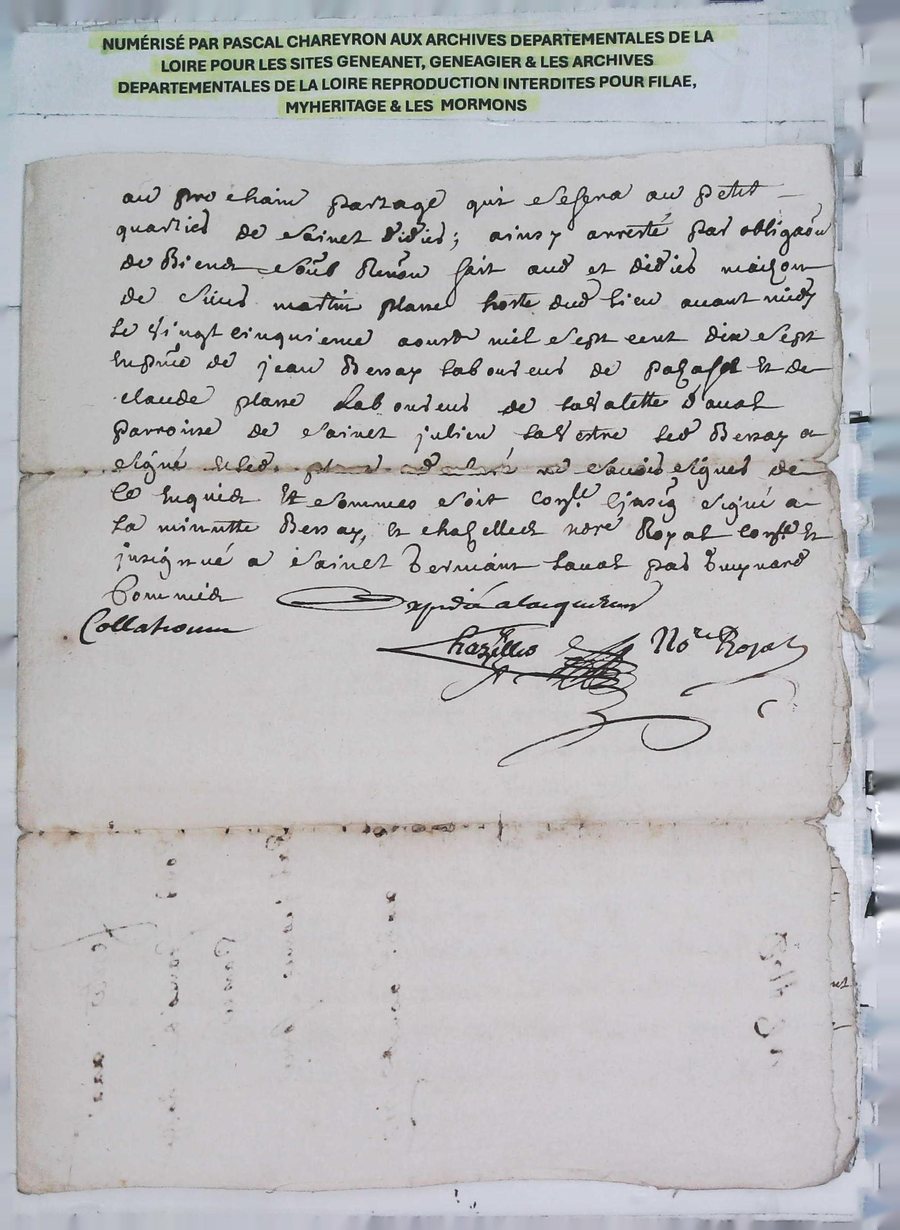 NUMÉRISÉ PAR PASCAL CHAREYRON AUX ARCHIVES DEPARTEMENTALES DE LA
LOIRE POUR LES SITES GENEANET, GENEAGIER & LES ARCHIVES
DEPARTEMENTALES DE LA LOIRE REPRODUCTION INTERDITES POUR FILAE,
MYHERITAGE & LES MORMONS
au prochain partage qui se fera au petit
quartier de sainct didier; ainsy arresté par obligaōn
de Biens soubs Renōn fait aud st didier maison
de sieur martin plasse hoste dud lieu avant midy
le vingt cinquieme aoust mil sept cent dix sept
En pñce de jean Bessay laboureur de et de
claude plasse Laboureur de lavalette d'aval
parroisse de sainct julien la vestre led Bessay a
signé et led. plasse a ne scavoir signer de
ce Enquis Et sommes soit contr. signé a
la minutte Bessay, et chazelles nore Royal contr Et
insignué a sainct Germain Laval par
Commis Expedié
Collationné
Chazelles Nore Royal